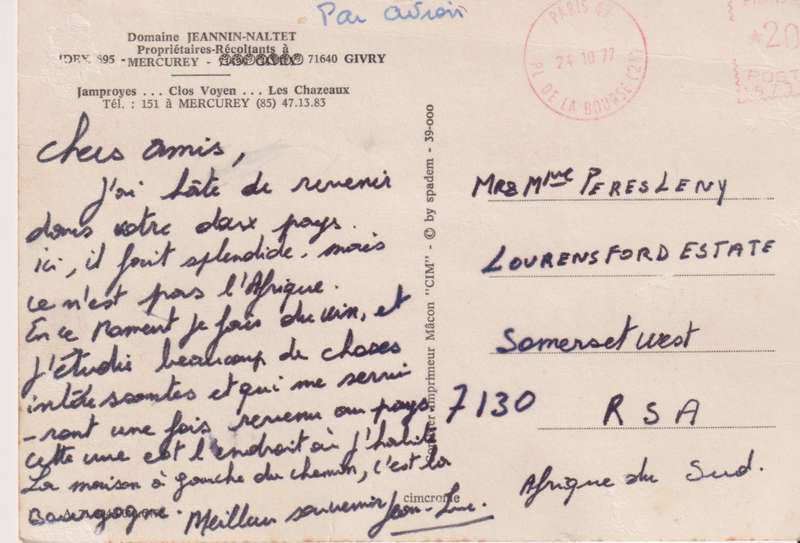 Par avion
Domaine JEANNIN-NALTET
Propriétaires-Récoltants à
MERCUREY - 71640 GIVRY
Jamproyes . . . Clos Voyen . . . Les Chazeaux
Tél. : 151 à MERCUREY (85) 47.13.83
PARIS
24 10 77
PL. DE LA BOURSE (2E)
POST
chers amis,
J'ai hâte de revenir
dans votre doux pays.
ici, il fait splendide. mais
ce n'est pas l'Afrique.
En ce Moment je fais du vin, et
J'étudie beaucoup de choses
intéressantes et qui me servi
-ront une fois revenu au pays
cette vue est l'endroit où J'habite
La maison à gauche du chemin, c'est la
Bourgogne. Meilleur souvenir
Jean-Luc.
imprimeur Mâcon "CIM" - © by spadem - 39-000
cimcrome
MRS Mme PERES LENY
LOURENSFORD ESTATE
Somerset West
7130 RSA
Afrique du Sud.